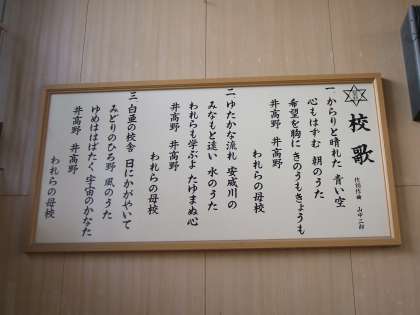 校歌
作詞作曲 山中三郎
一 からりと晴れた 青い空
心もはずむ 朝のうた
希望を胸に きのうもきょうも
井高野 井高野
われらの母校
二 ゆたかな流れ 安威川の
みなもと遠い 水のうた
われらも学ぶよ たゆまぬ心
井高野 井高野
われらの母校
三 白亜の校舎 日にかがやいて
みどりのひろ野 風のうた
ゆめははばたく 宇宙のかなた
井高野 井高野
われらの母校